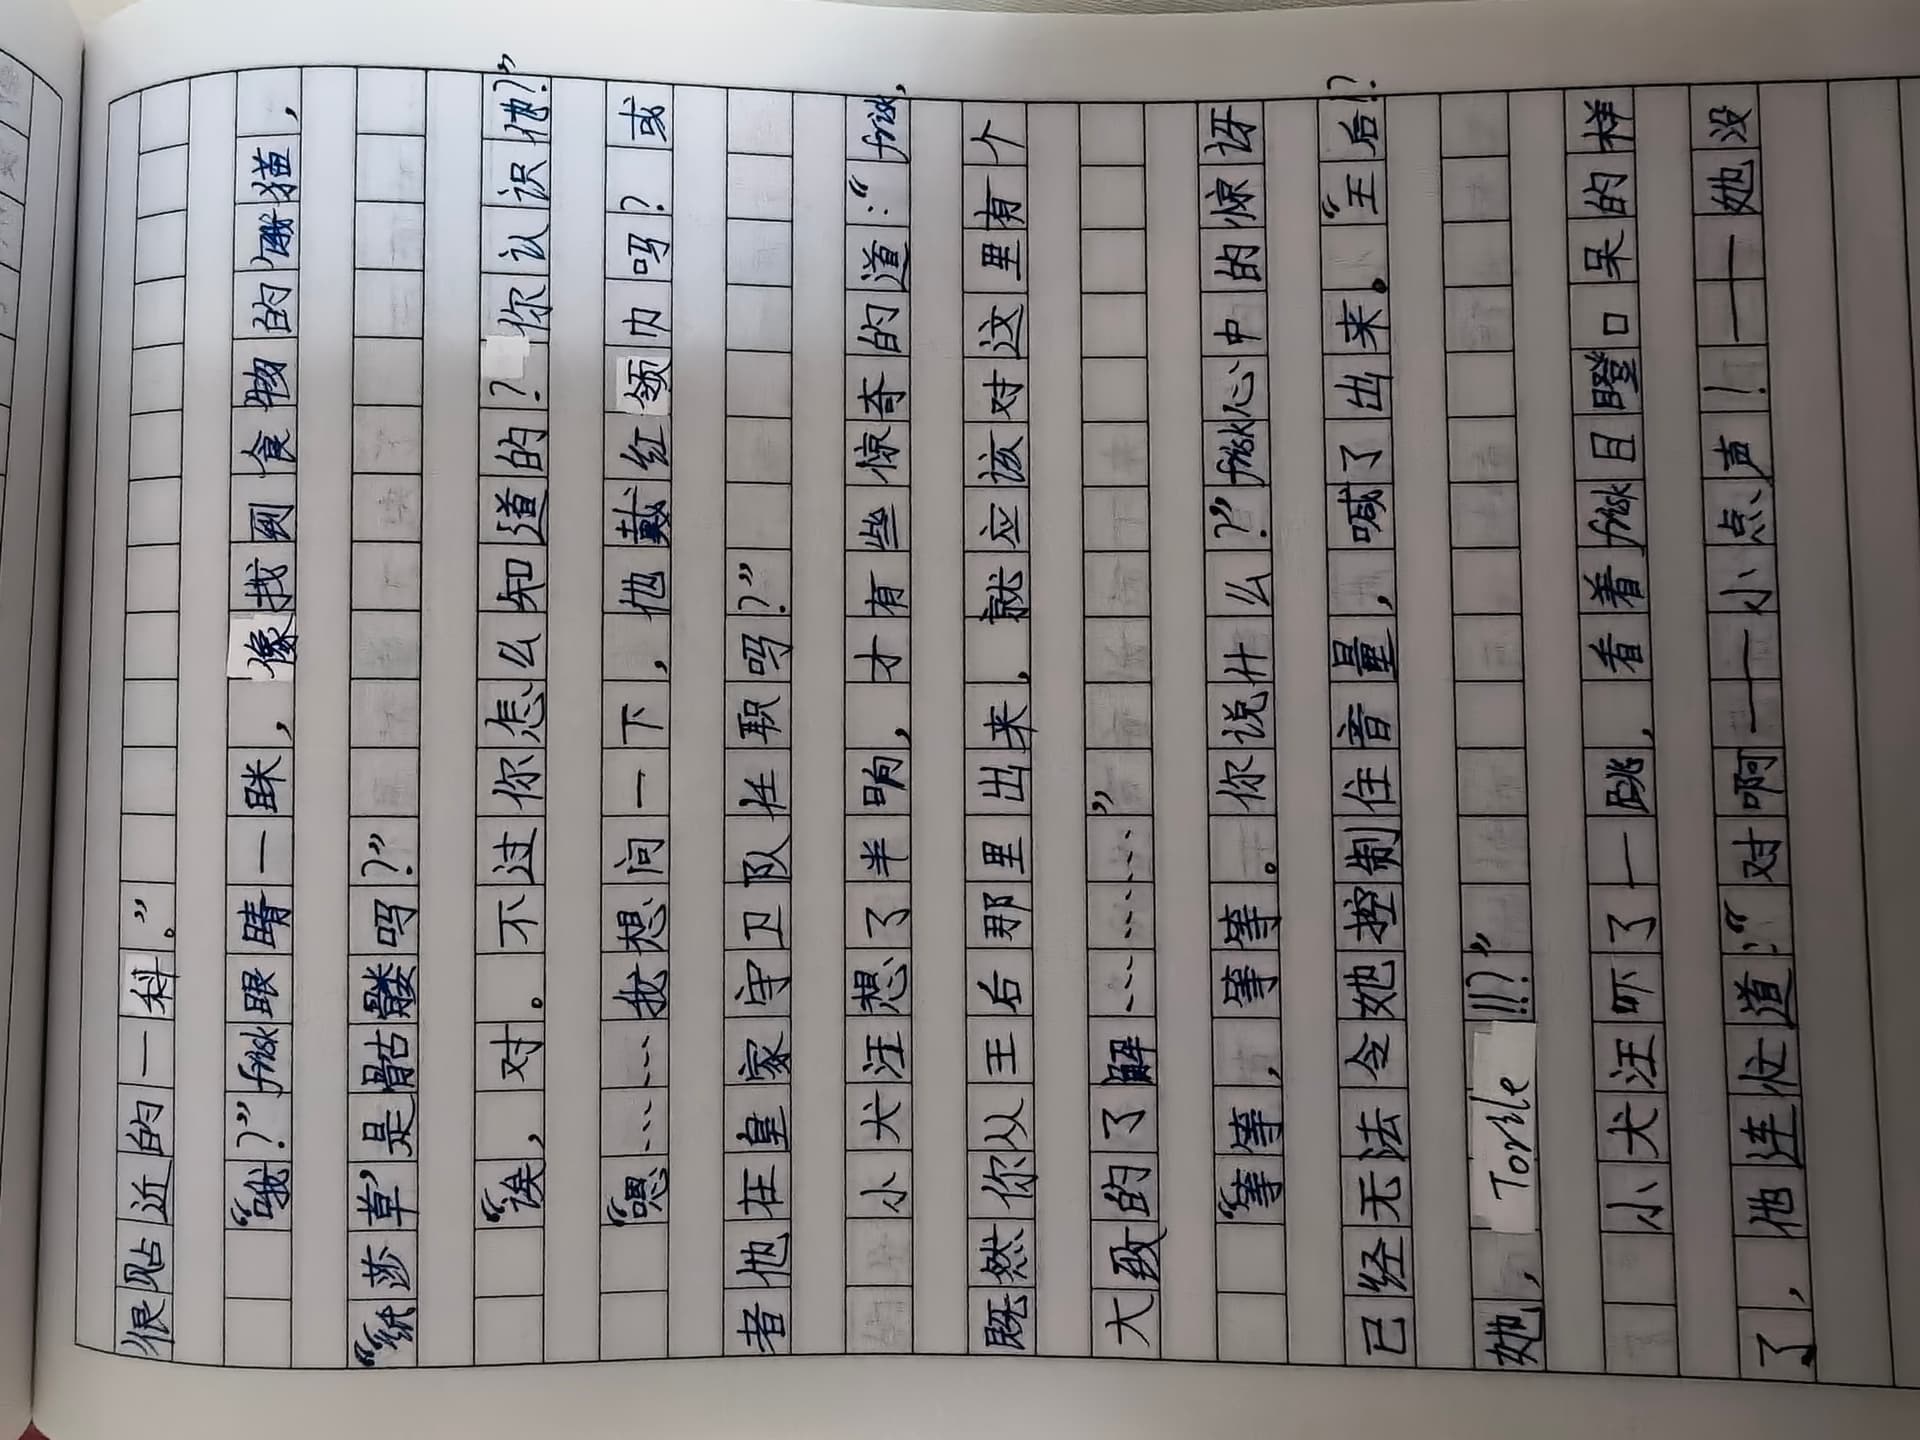 很贴近的一科。”
“哦？”frisk眼睛一眯，像找到食物的饿猫，
“‘纸莎草’是骷髅吗？”
“诶，对。不过你怎么知道的？你认识他？”
“嗯……我想问一下，他戴红领巾吗？或
者他在皇家守卫队任职吗？”
小犬汪想了半响，才有些惊奇的道：“frisk，
既然你从王后那里出来，就应该对这里有个
大致的了解…………”
“等等，等等。你说什么？”frisk心中的惊讶
已经无法令她控制住音量，喊了出来。“王后！？
她，Torile!!!？”
小犬汪吓了一跳，看着frisk目瞪口呆的样
了，他连忙道：“对啊——小点声！——她没